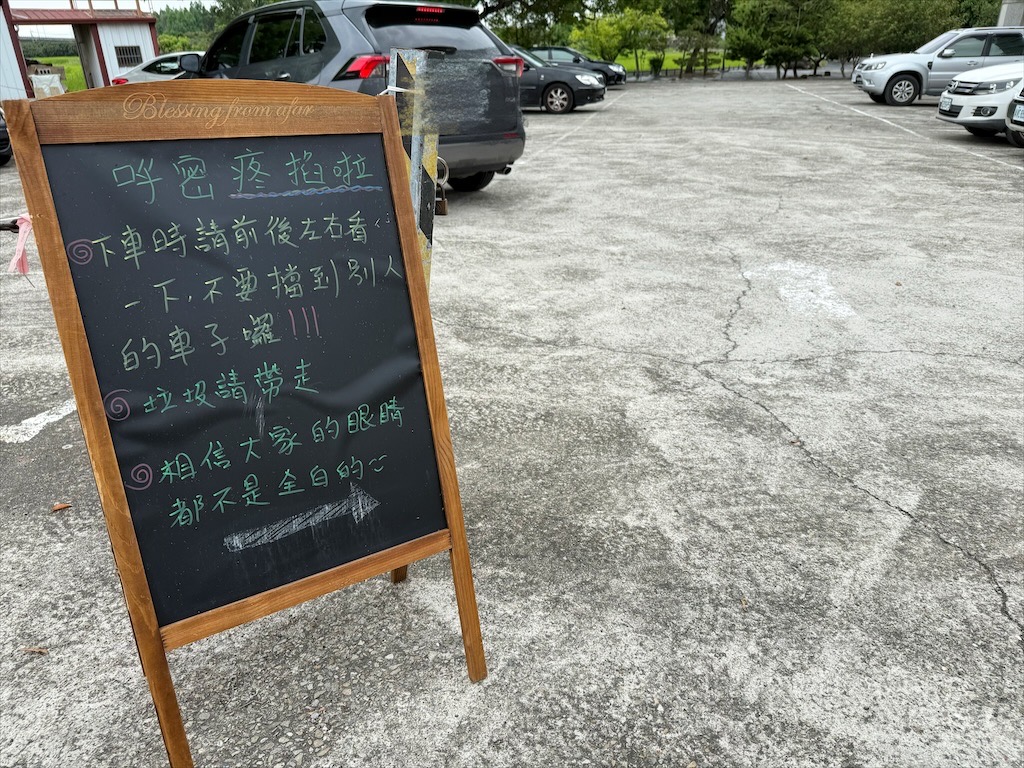 Blessing from afar
呼密疼掐啦
下車時請前後左右看
一下,不要擋到別人
的車子囉!!!
垃圾請帶走
相信大家的眼睛
都不是全白的